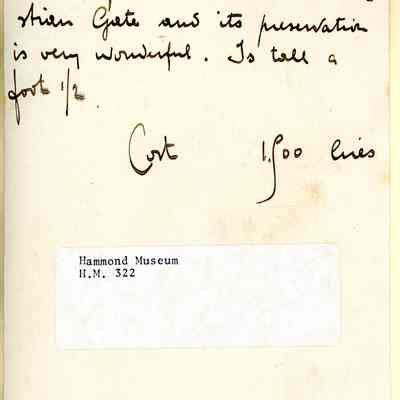 stian Gate and its preservation
is very wonderful. Is tall a
foot 1/2
Cost 1.500 lires
Hammond Museum
H.M. 322